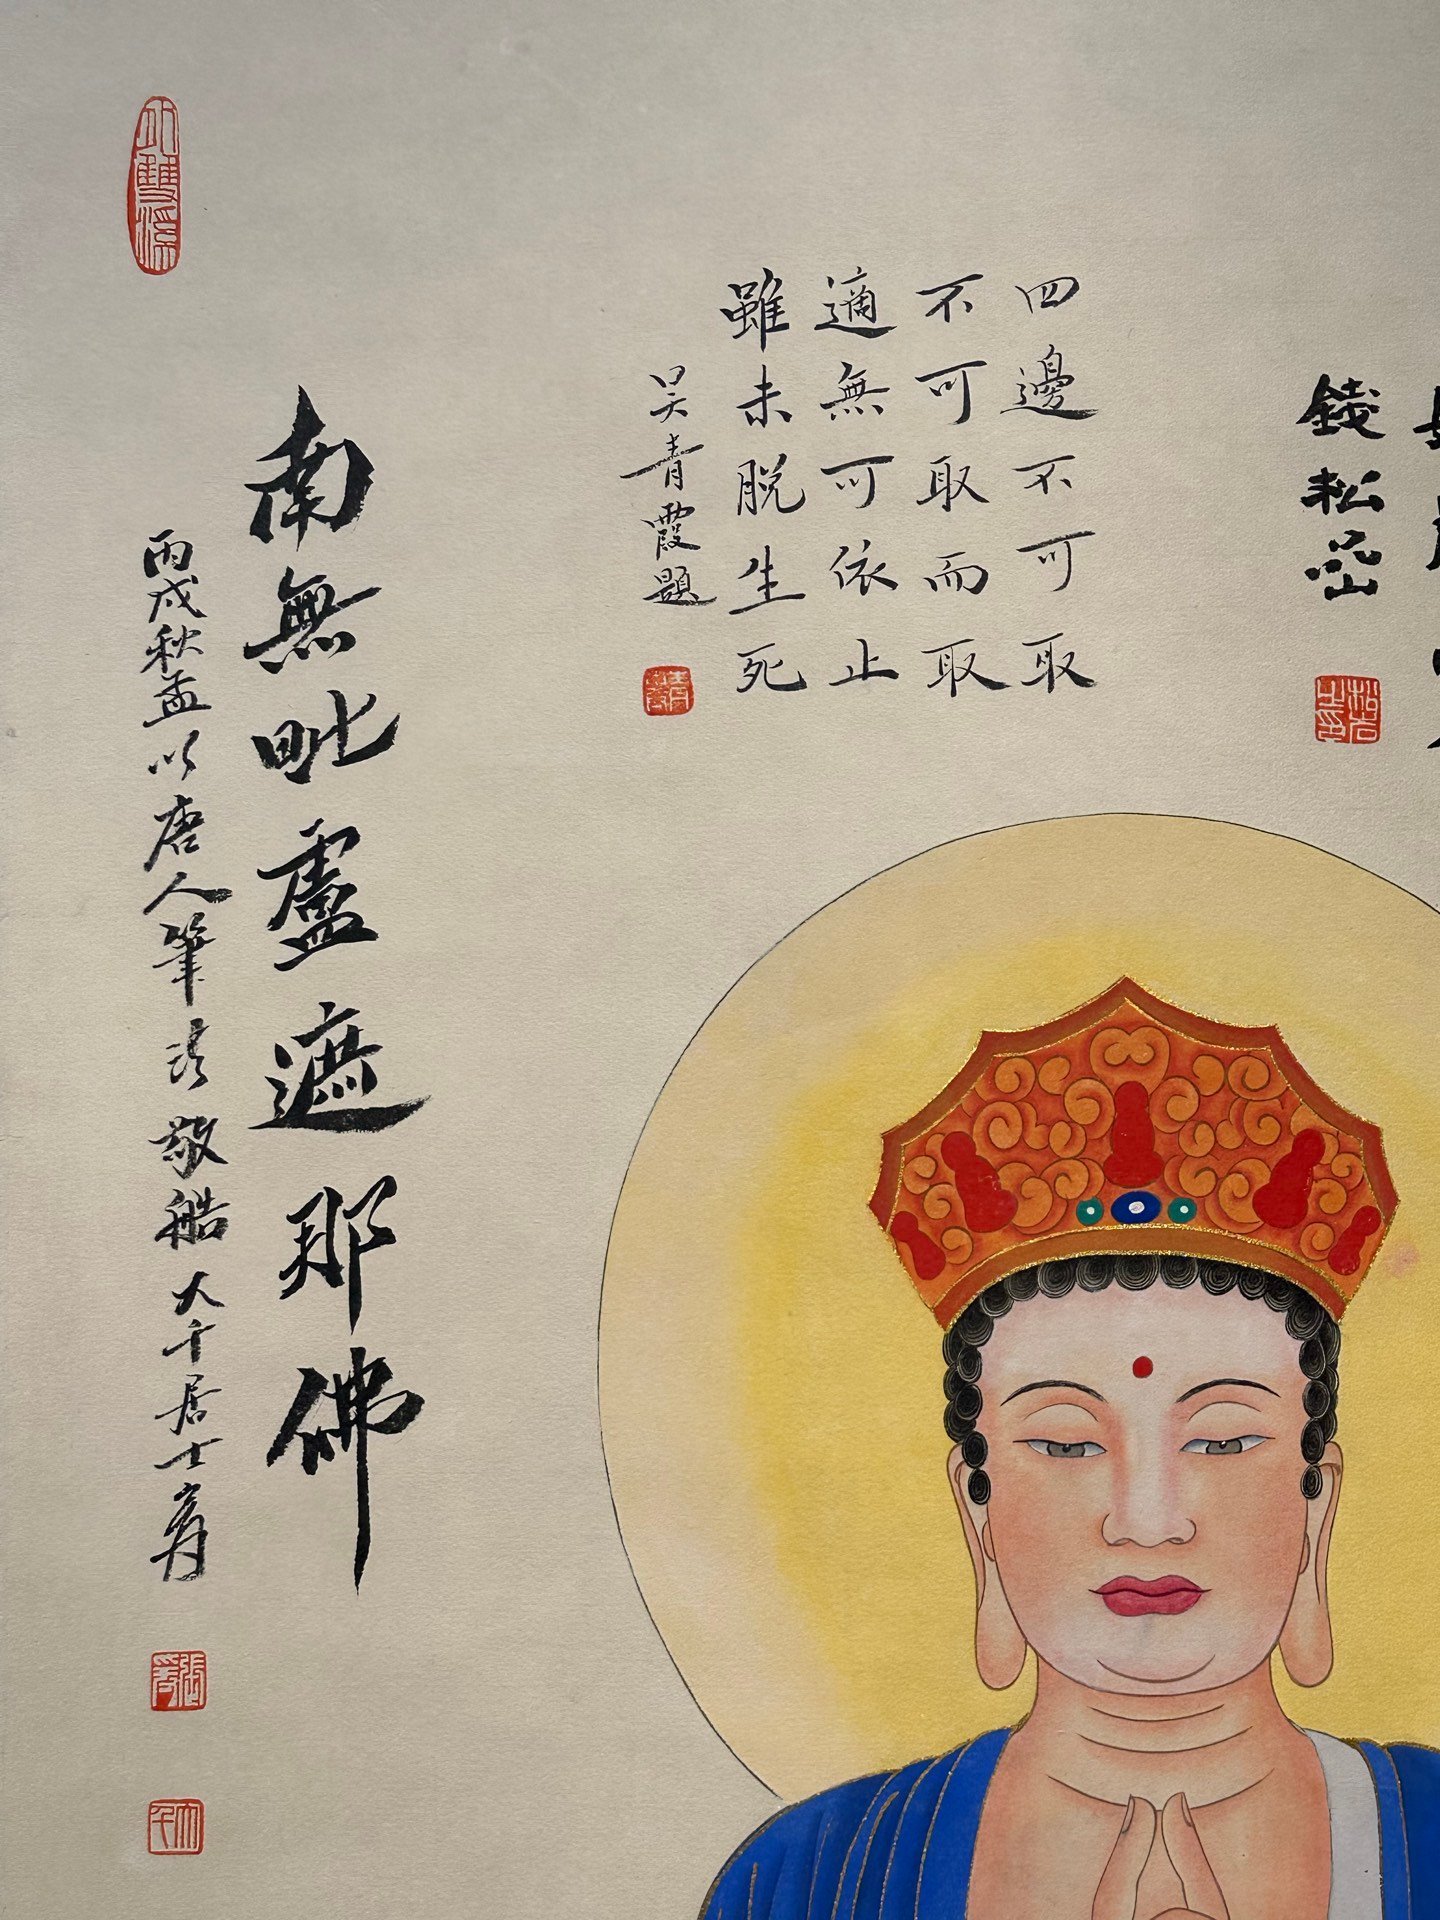 錢松嵒
四邊不可取
不可取而取
適無可依止
雖未脱生死
吴青霞題
南無毗盧遮那佛
丙戌秋孟以唐人筆法敬䑩大千居士爰